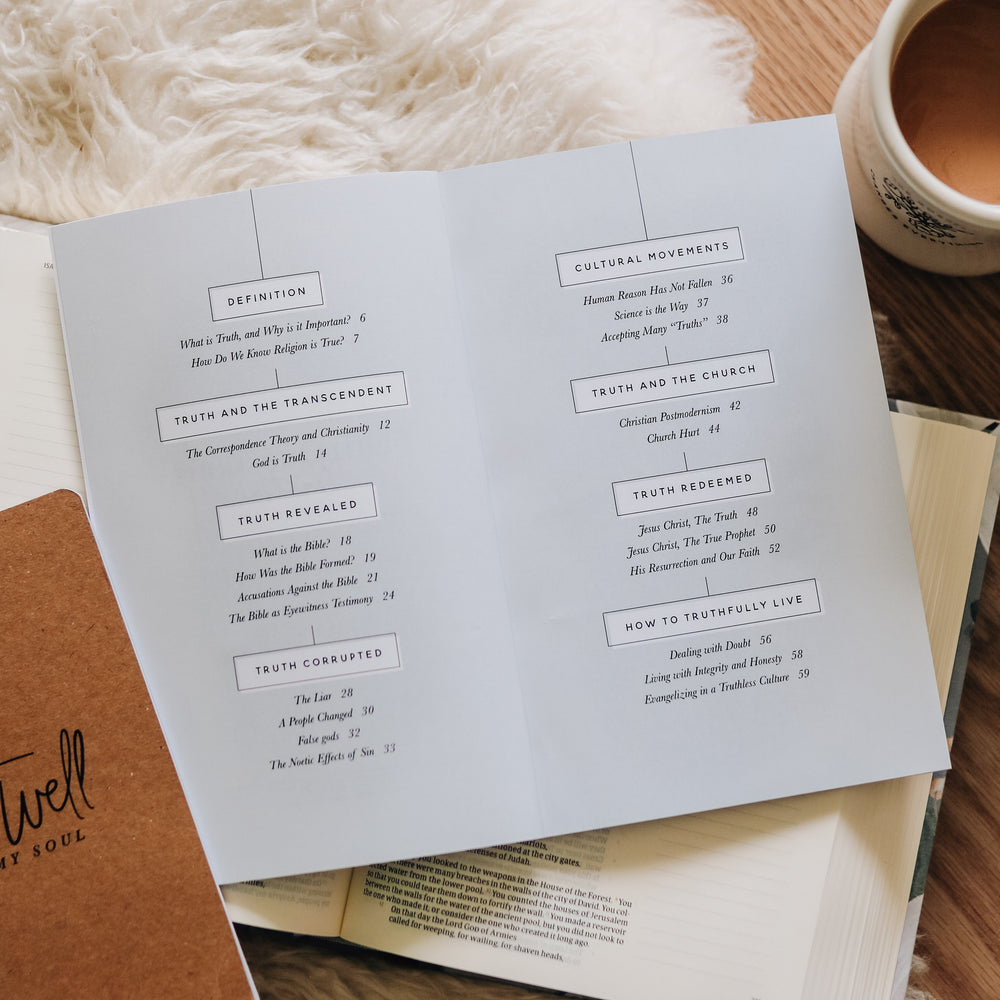 DEFINITION
What is Truth, and Why is it Important? 6
How Do We Know Religion is True? 7
TRUTH AND THE TRANSCENDENT
The Correspondence Theory and Christianity 12
God is Truth 14
TRUTH REVEALED
What is the Bible? 18
How Was the Bible Formed? 19
Accusations Against the Bible 21
The Bible as Eyewitness Testimony 24
TRUTH CORRUPTED
The Liar 28
A People Changed 30
False gods 32
The Noetic Effects of Sin 33
CULTURAL MOVEMENTS
Human Reason Has Not Fallen 36
Science is the Way 37
Accepting Many “Truths” 38
TRUTH AND THE CHURCH
Christian Postmodernism 42
Church Hurt 44
TRUTH REDEEMED
Jesus Christ, The Truth 48
Jesus Christ, The True Prophet 50
His Resurrection and Our Faith 52
HOW TO TRUTHFULLY LIVE
Dealing with Doubt 56
Living with Integrity and Honesty 58
Evangelizing in a Truthless Culture 59
ISA
well
MY SOUL
at the city gates.
of Judah.
you looked to the weapons in the House of the Forest. You
there were many breaches in the walls of the city of David. You col-
water from the lower pool. You counted the houses of Jerusalem
so that you could tear them down to fortify the wall. You made a reservoir
between the walls for the water of the ancient pool, but you did not look to
the one who made it, or consider the one who created it long ago.
On that day the Lord GOD of Armies
called for weeping, for wailing, for shaven heads,